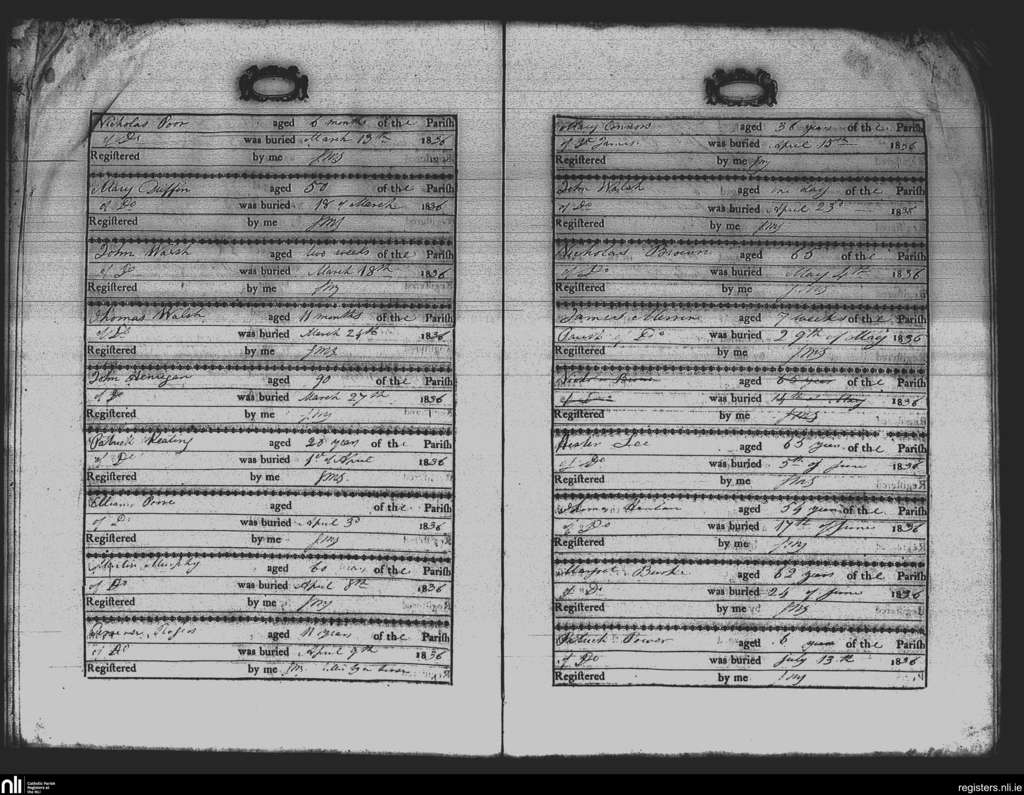 Nicholas Poor aged 6 months of the Parish
of Do was buried March 13th 1836
Registered by me JMG
Mary Duffin aged 50 of the Parish
of Do was buried 18 of March 1836
Registered by me JMG
John Walsh aged two weeks of the Parish
of Do was buried March 18th 1836
Registered by me JMG
Thomas Walsh aged 11 months of the Parish
of Do was buried March 24th 1836
Registered by me JMG
John Henegan aged 90 of the Parish
of Do was buried March 27th 1836
Registered by me JMG
Patrick Keating aged 28 years of the Parish
of Do was buried 1st of April 1836
Registered by me JMG
Elliam Poore aged of the Parish
of Do was buried April 3d 1836
Registered by me JMG
Martin Murphy aged 60 years of the Parish
of Do was buried April 8th 1836
Registered by me JMG
aged 11 years of the Parish
of Do was buried April 9th 1836
Registered by me JMG
Mary Connors aged 36 years of the Parish
of St James was buried April 15th 1836
Registered by me JMG
John Walsh aged one day of the Parish
of Do was buried April 23d 1836
Registered by me JMG
Nicholas Brown aged 65 of the Parish
of Do was buried May 4th 1836
Registered by me JMG
James aged 7 weeks of the Parish
Parish Do was buried 29th of May 1836
Registered by me JMG
aged 65 year of the Parish
was buried May 1836
Registered by me JMG
Lee aged 65 years of the Parish
of Do was buried 5th of June 1836
Registered by me JMG
Thomas Hanlan aged 54 years of the Parish
of Do was buried 17th of June 1836
Registered by me JMG
Margret Burke aged 62 years of the Parish
of Do was buried 24 of June 1836
Registered by me JMG
Patrick Power aged 6 years of the Parish
of Do was buried July 13th 1836
Registered by me JMG
nli Catholic Parish
Registers at
the NLI
registers.nli.ie